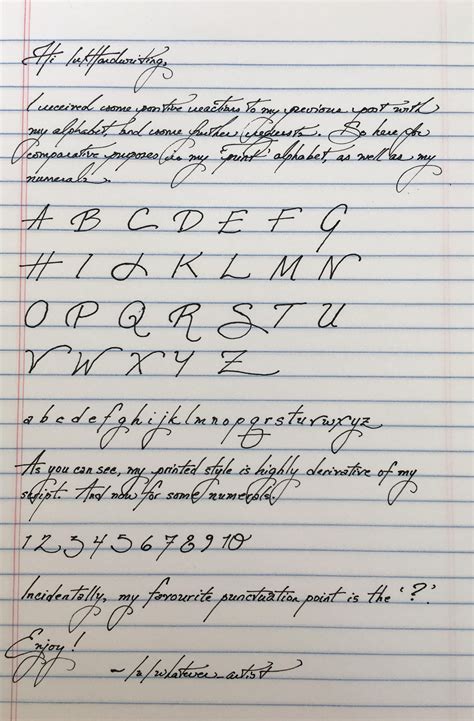 Hi /r/Handwriting,
I received some positive reactions to my previous post with
my alphabet, and some further requests. So here for
comparative purposes is my 'print' alphabet, as well as my
numerals.
A B C D E F G
H I J K L M N
O P Q R S T U
V W X Y Z
a b c d e f g h i j k l m n o p q r s t u v w x y z
As you can see, my printed style is highly derivative of my
script. And now for some numerals.
1 2 3 4 5 6 7 8 9 10
Incidentally, my favourite punctuation point is the '?'.
Enjoy!
- /u/whatever_artist